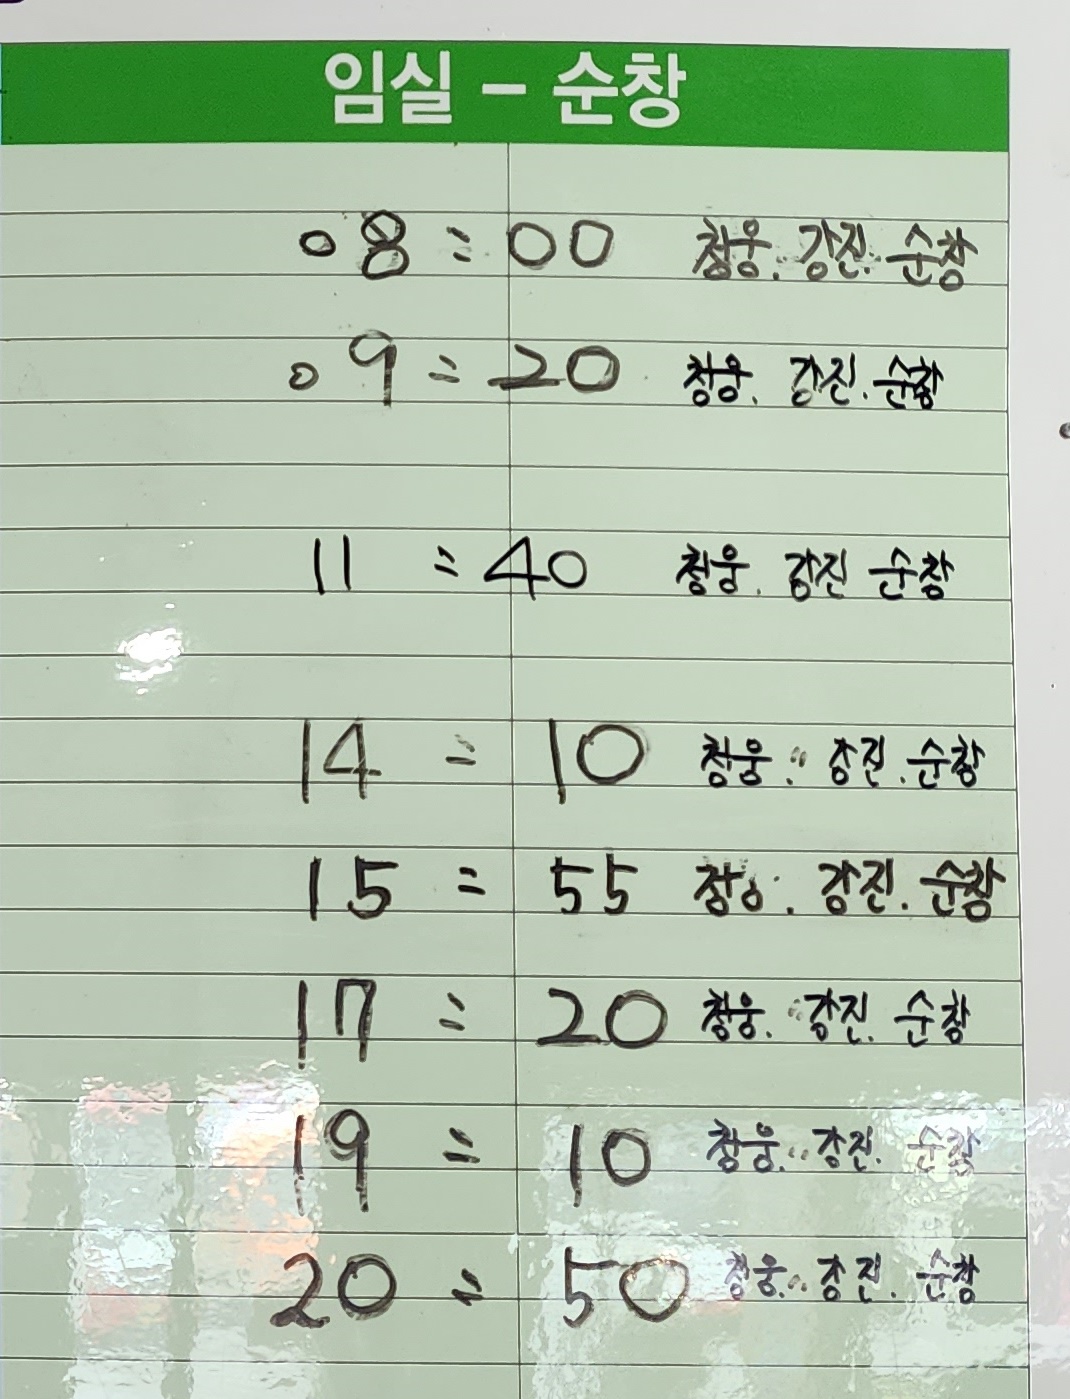 임실 - 순창
08:00 청웅. 강진. 순창
09:20 청웅. 강진. 순창
11:40 청웅. 강진 순창
14:10 청웅. 강진. 순창
15:55 청웅. 강진. 순창
17:20 청웅. 강진. 순창
19:10 청웅. 강진. 순창
20:50 청웅. 강진. 순창